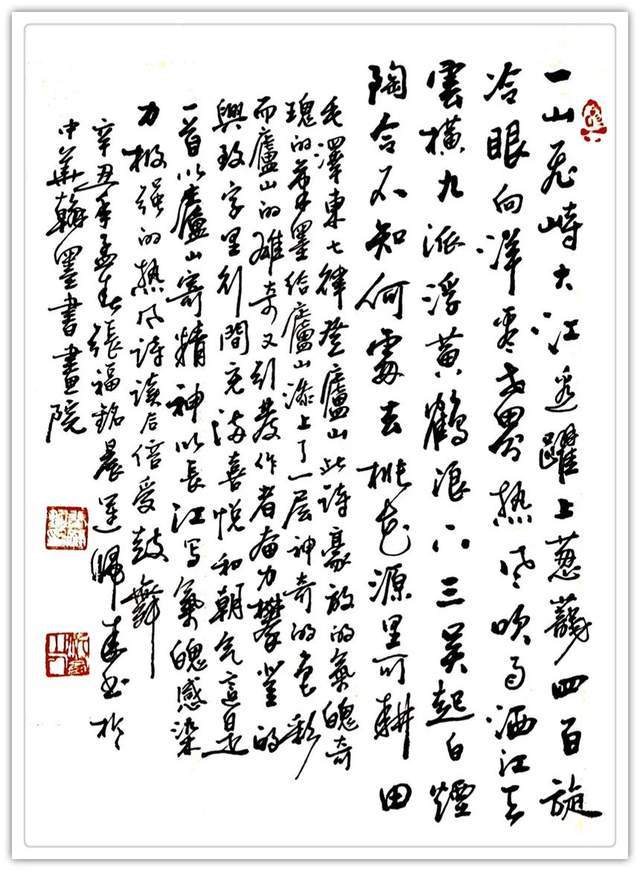 一山飛峙大江邊躍上葱蘢四百旋
冷眼向洋看世界热风吹雨洒江天
雲横九派浮黄鶴浪下三吴起白煙
陶令不知何處去桃花源里可耕田
毛澤東七律登廬山此詩豪放的氣魄奇
瑰的筆墨给廬山添上了一层神奇的色彩
而廬山的雄奇又引發作者奋力攀登的
興致字里行間充满喜悦和朝气這是
一首以廬山寄精神以長江写氣魄感染
力极强的热风诗读后倍受鼓舞
辛丑年孟春張福銘晨運歸来书於
中華翰墨書畫院